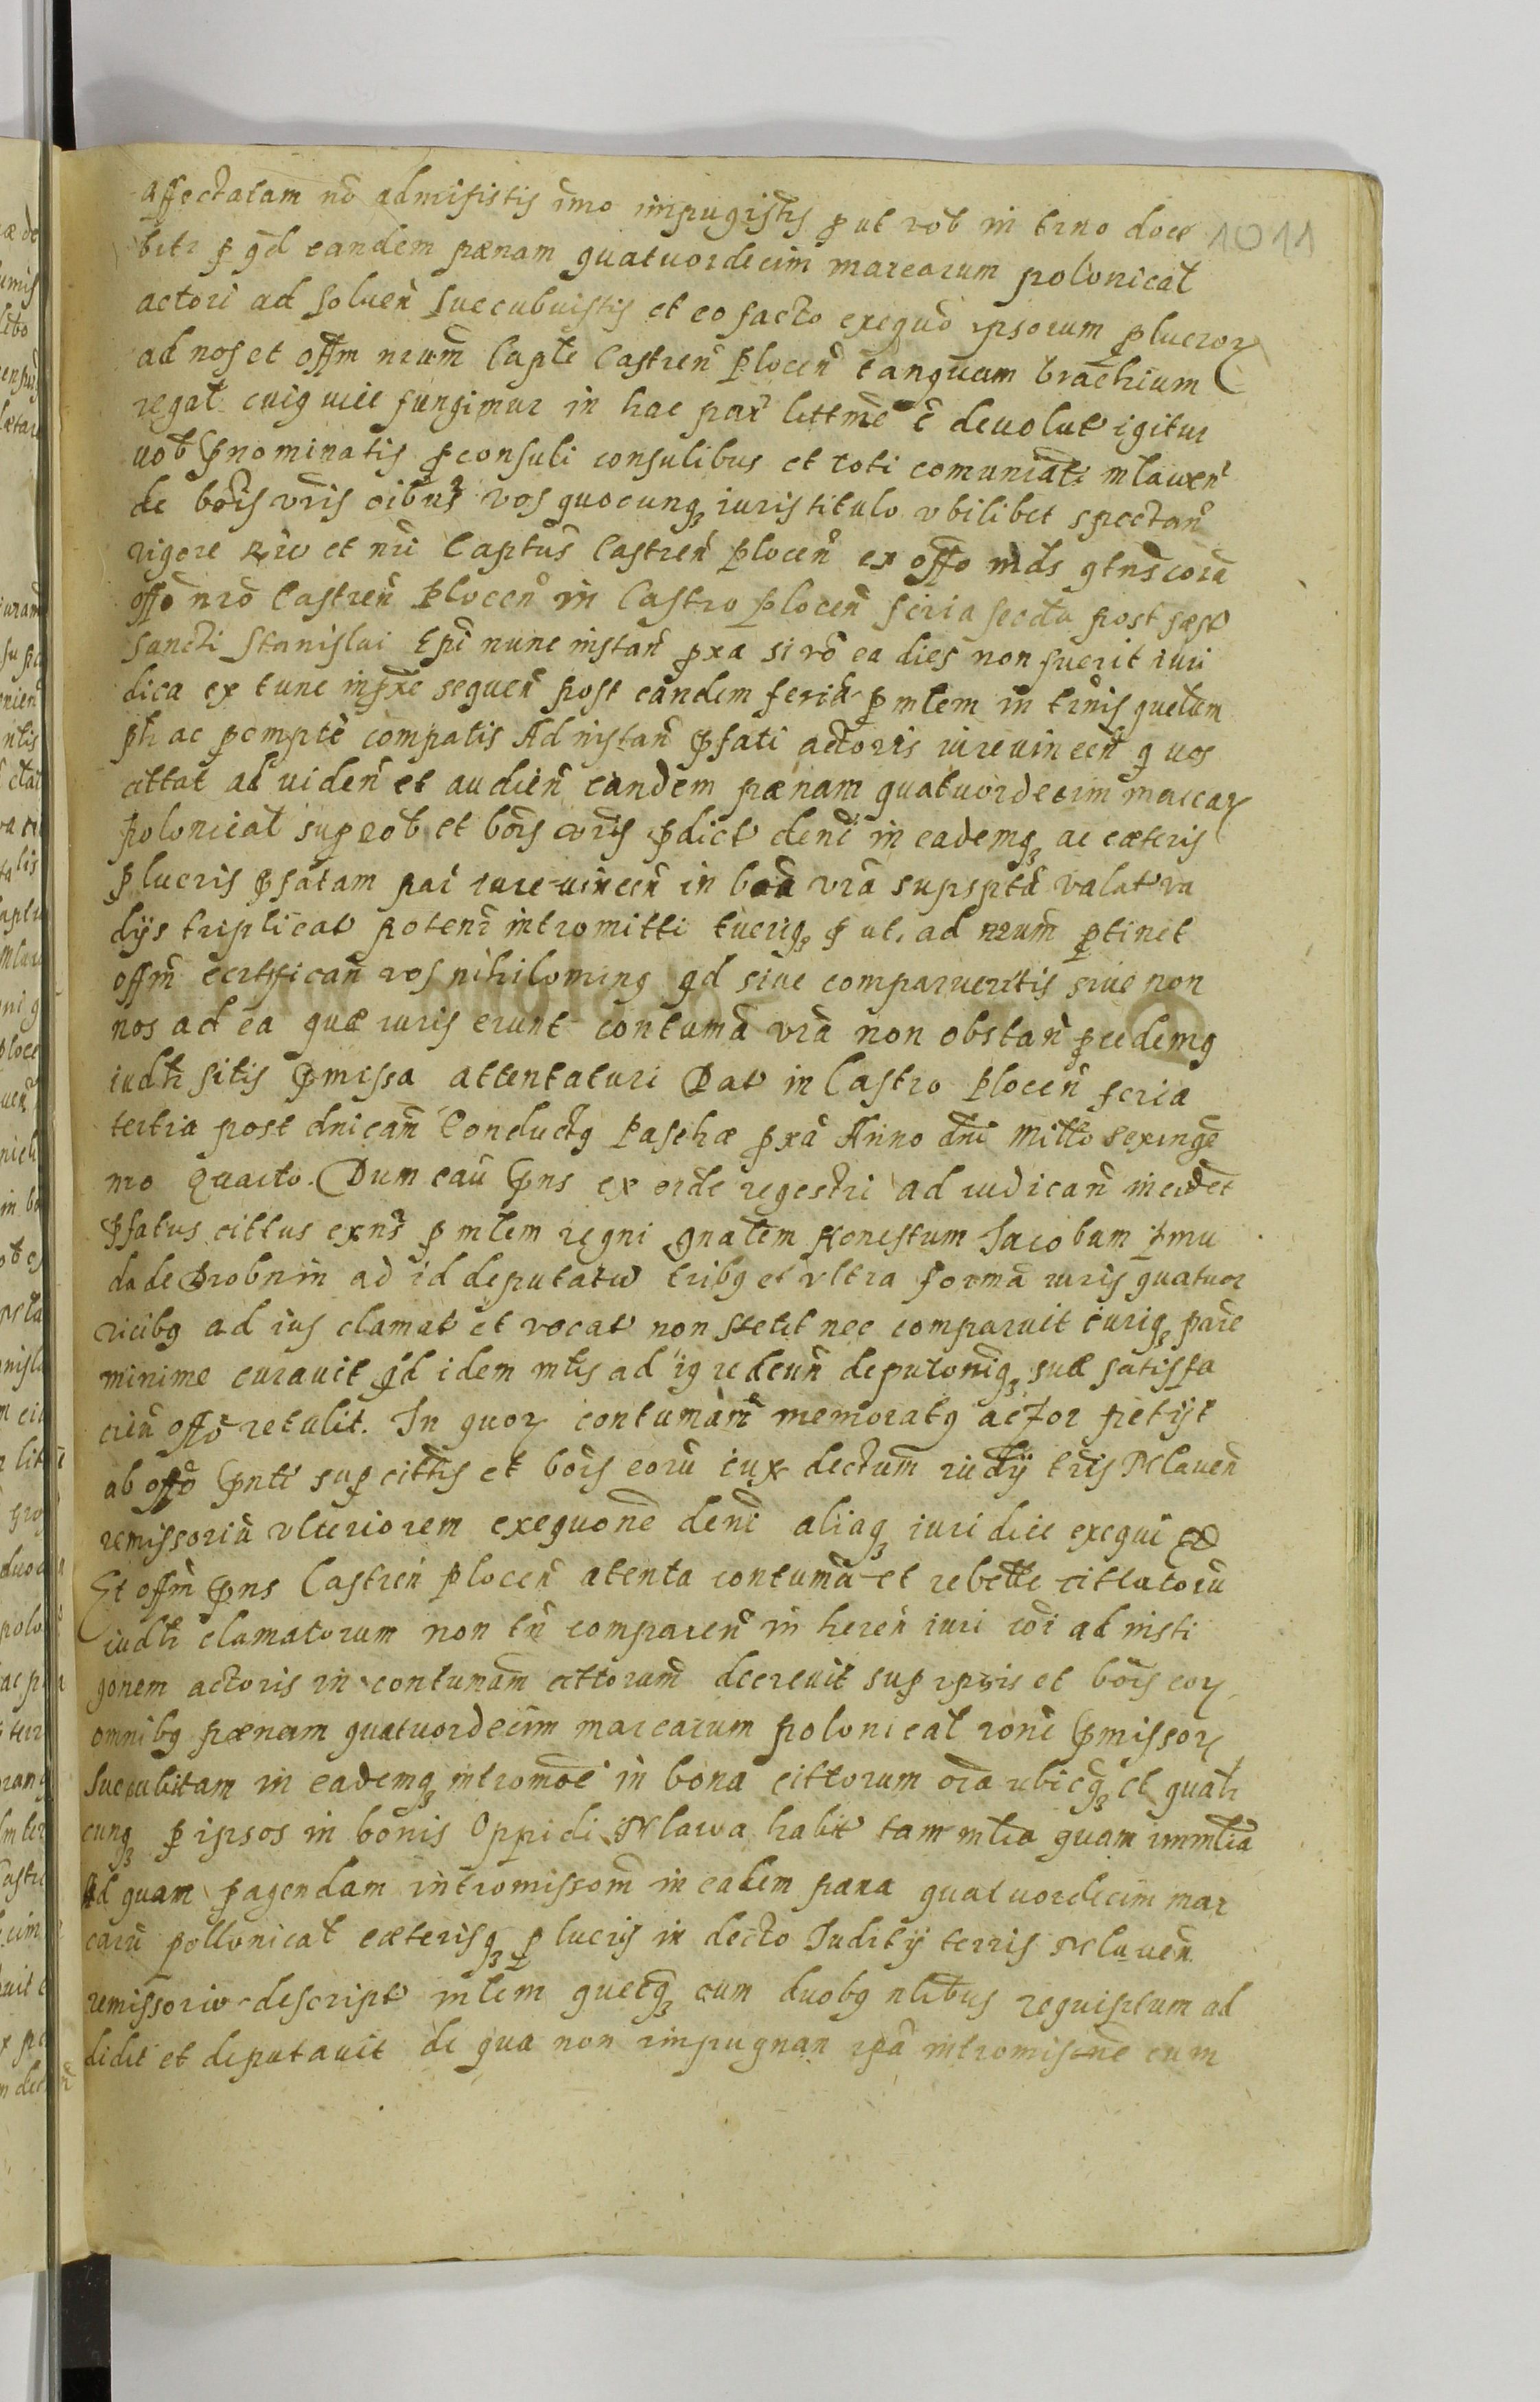 affectatam nō admisistis īmo impugistis ꝓ ut vob in trno doce 1011
bitr ꝑ qd eandem pænam quatuordecim marcarum polonical
actori ad soluen̄ succubuistis et eo facto exequō ipsorum ꝑlucror
ad nos et offm nrum Capte Castren̄ Plocen̄ tanquam brachium
regal cuiq vice fungimur in hac par littme ē devolut igitur
vob pnominatis pconsuli consulibus et toti comuniati mlauen̄
de bōis vris oibus vos quocunq iuris titulo vbilibet spectan̄
rigore et nri Captus Castren̄ Plocen̄ ex offo mds qtns corā
offo nrō Castren̄ Plocen̄ in Castro Plocen̄ feria secda post fæst
sancti Stanislai Epi nunc instan̄ pxa si vō ea dies non fuerit iuri
dica ex tunc in sequen̄ post eandem feriā ꝑ mlem in trnis quetem
ph ac pempte compatis Ad instan̄ pfati actoris iurevincen̄ q vos
cittat ad viden̄ et audien̄ eandem pænam quatuordecim marcar
polonical sup vob et bōis vris pdict denī in eademq ac cæteris
ꝑlucris pfatam par iure vincen̄ in bōa vrā supsptā valat va
dys triplicat poten intromitti tueriq ꝓ ut ad nrum ꝑtinet
offm certifican̄ vos nihilominq qd siue comparueritis siue non
nos ad ea quæ iuris erunt contumā vrā non obstan̄ pcedemq
iudtr sitis pmissa attentaturi Dat in Castro Plocen̄ feria
tertia post dnicam Conductq Paschæ pxa Anno dni Millo Sexinge
mo Quarto. Dum cau pns ex orde regestri ad iudican̄ incidet
pfatus cittus exns ꝑ mlem regni gnalem Honestum Jacobum
da de Drobnin ad id deputatu tribq et vltra formā iuris quatuor
vicibq ad ius clamat et vocat non stetit nec comparuit iuriq pare
minime curavit qd idem mlis ad iq redeun̄ deputoniq suæ satisfa
cien̄ offo retulit. In quor contumām memoratq actor petijt
ab offo pnti sup cittis et bōis eorū iux dectum iudij tris Mlauen̄
remissoriū vlteriorem exequone denī aliaq iuridice exequi
Et offm pns Castren̄ Plocen̄ atenta contumā et rebelle cittatorū
iudtr clamatorum non tn̄ comparen̄ in heren̄ iuri ad insti
gonem actoris in contumam cittorum decrevit sup ipsis et bōis eor
omnibq pænam quatuordecim marcarum polonical roni pmissor
succubitam in eademq intromōe in bona cittorum ubicq et qualr
cunq ꝑ ipsos in bonis Oppidi Mlawa habit tam mlia quam immlia
Ad quam pagendam intromissom in eadem pæna quatuordecim mar
carū pollonical cæterisq ꝑlucris in decto Juditij terris Mlauen̄
remissorio descript mlem quecq cum duobq nlibus requisitum ad
didit et deputauit de qua non impugnan ipā intromisne cum